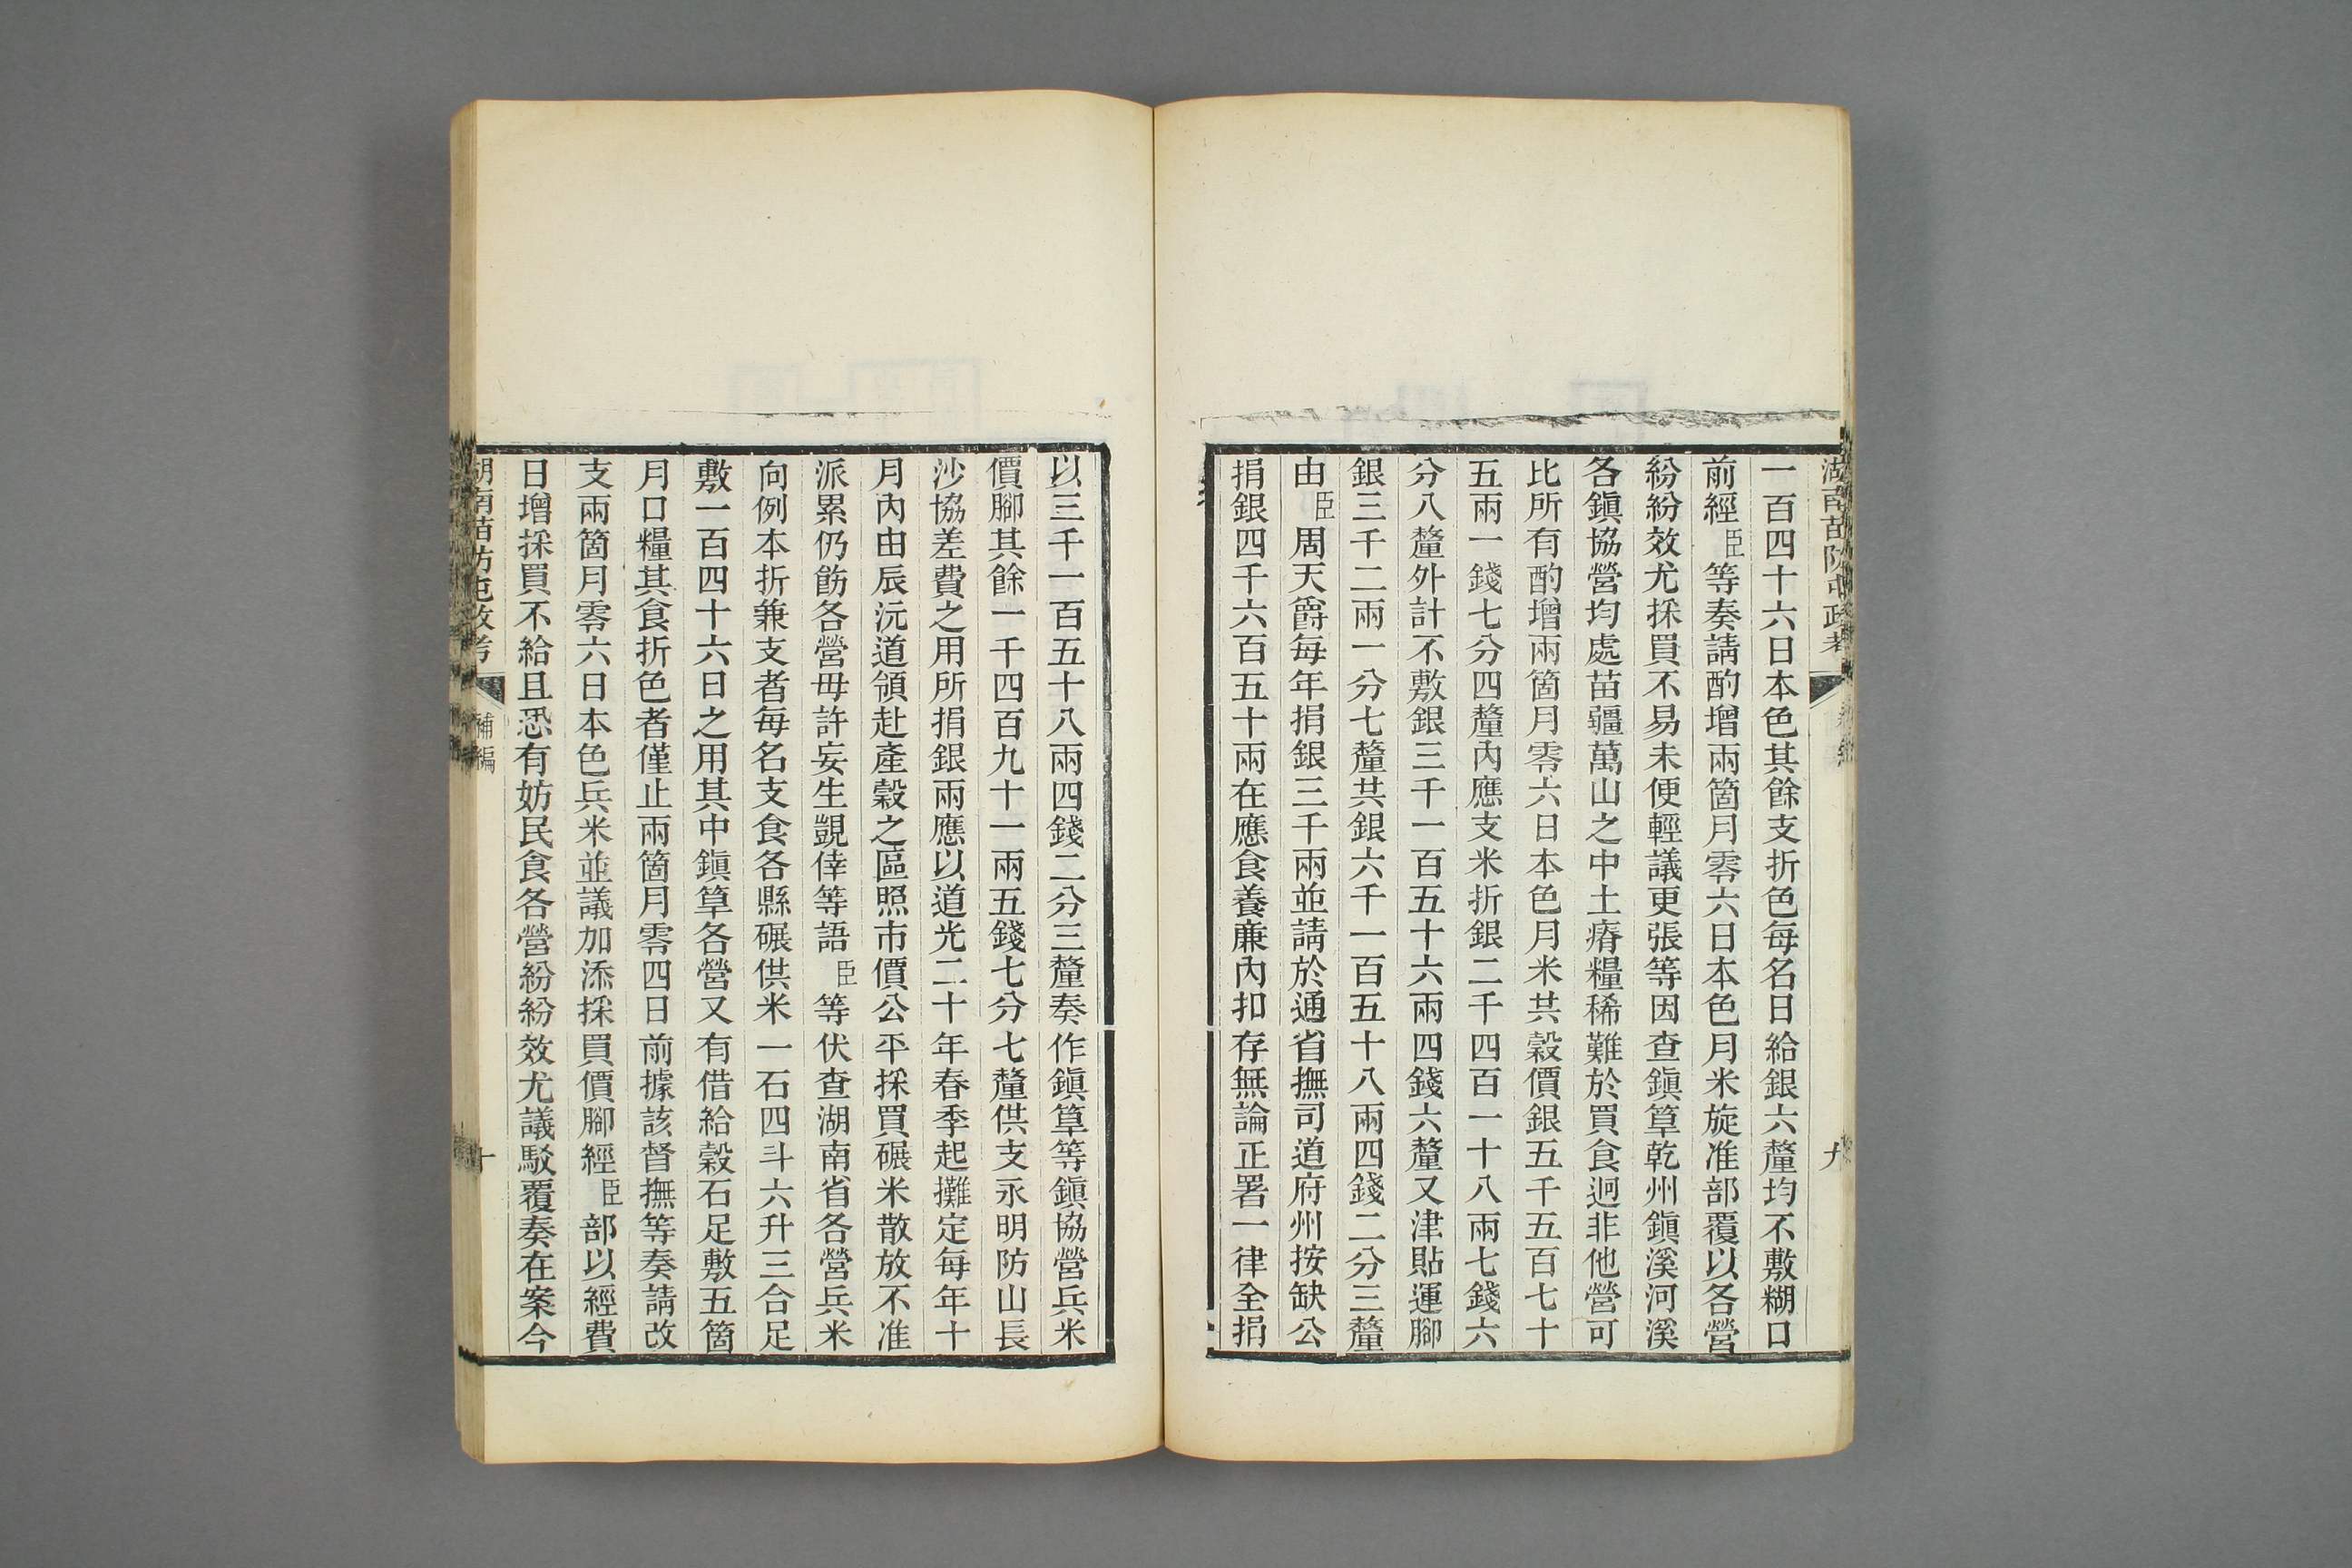 湖南苗防屯政考
九
一百四十六日本色其餘支折色每名日給銀六釐均不敷糊口
前經臣等奏請酌增兩箇月零六日本色月米旋准部覆以各營
紛紛效尤採買不易未便輕議更張等因查鎭筸乾州鎭溪河溪
各鎭協營均處苗疆萬山之中土瘠糧稀難於買食迥非他營可
比所有酌增兩箇月零六日本色月米共穀價銀五千五百七十
五兩一錢七分四釐內應支米折銀二千四百一十八兩七錢六
分八釐外計不敷銀三千一百五十六兩四錢六釐又津貼運腳
銀三千二兩一分七釐共銀六千一百五十八兩四錢二分三釐
由臣周天爵每年捐銀三千兩並請於通省撫司道府州按缺公
捐銀四千六百五十兩在應食養廉內扣存無論正署一律全捐
以三千一百五十八兩四錢二分三釐奏作鎭筸等鎭協營兵米
價腳其餘一千四百九十一兩五錢七分七釐供支永明防山長
沙協差費之用所捐銀兩應以道光二十年春季起攤定每年十
月內由辰沅道領赴產穀之區照市價公平採買碾米散放不准
派累仍飭各營毋許妄生覬倖等語臣等伏查湖南省各營兵米
向例本折兼支者每名支食各縣碾供米一石四斗六升三合足
敷一百四十六日之用其中鎭筸各營又有借給穀石足敷五箇
月口糧其食折色者僅止兩箇月零四日前據該督撫等奏請改
支兩箇月零六日本色兵米並議加添採買價腳經臣部以經費
日增採買不給且恐有妨民食各營紛紛效尤議駁覆奏在案今
湖南苗防屯政考
補編
十